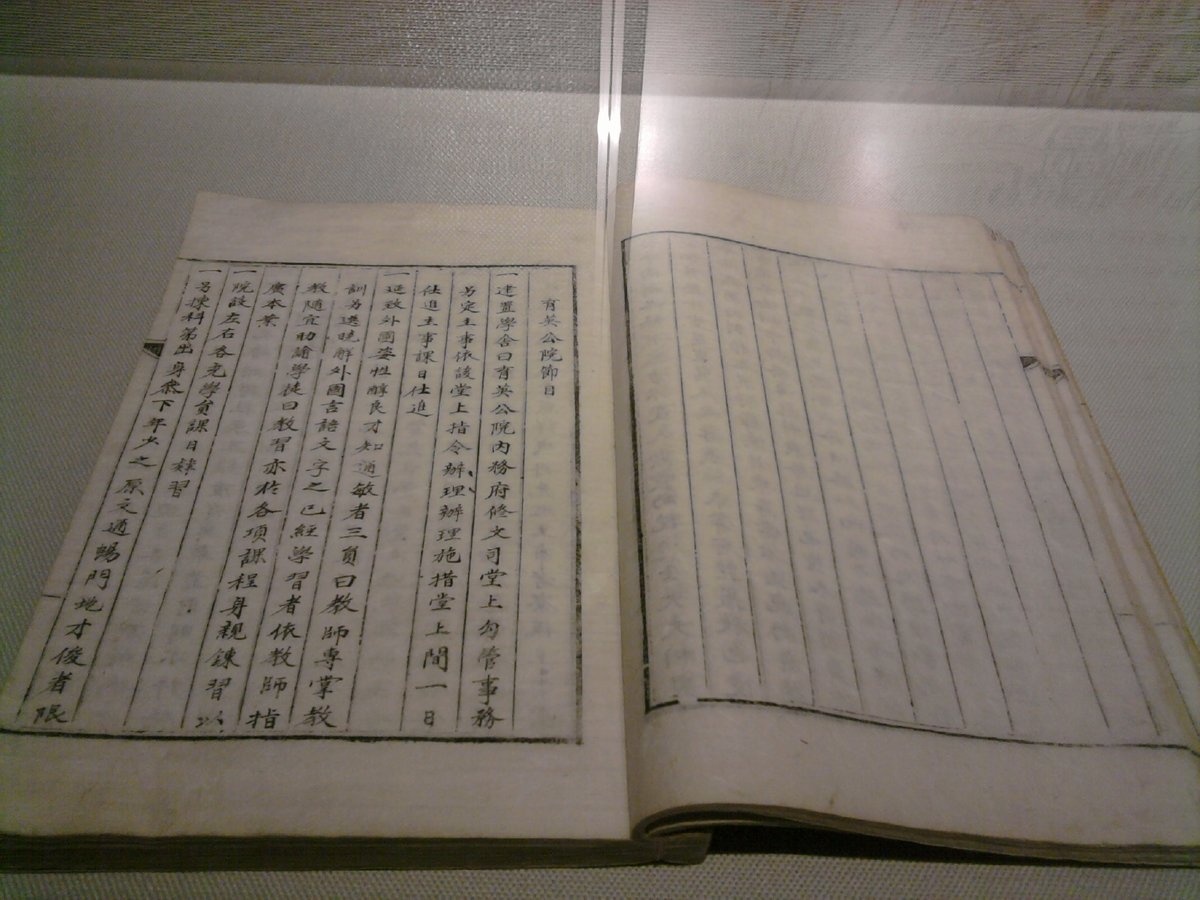 育英公院節目
一建置學舍曰育英公院內務府修文司堂上勾管事務
另定主事依該堂上指令辦理辦理施措堂上間一日
仕進主事課日仕進
一延致外國姿性醇良才知通敏者三員曰教師專掌教
訓另選曉解外國言語文字之已經學習者依教師指
教隨宜助諭學徒曰教習亦於各項課程身親鍊習以
廣本業
一院設左右各充學員課日肄習
一另揀科第出身參下年少之原文通暢門地才俊者限